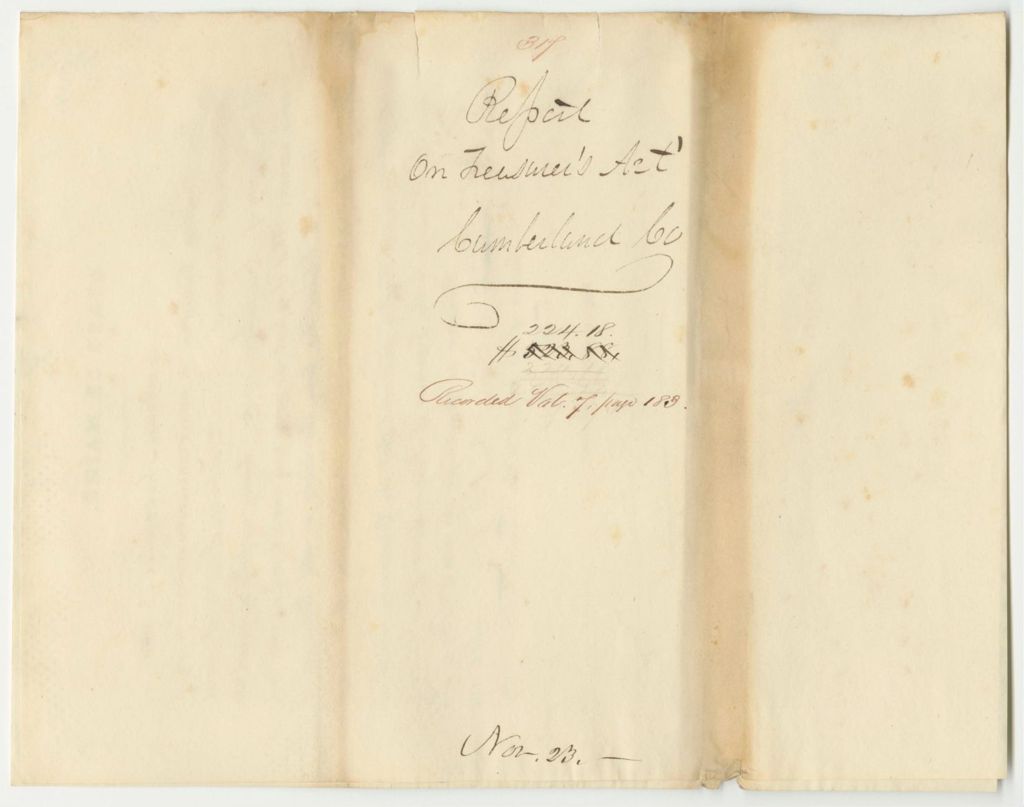 37
Report
On Treasurer's Act
Cumberland Co
224.18.
$
Recorded Vol. 7, page 183.
Nov. 23. —